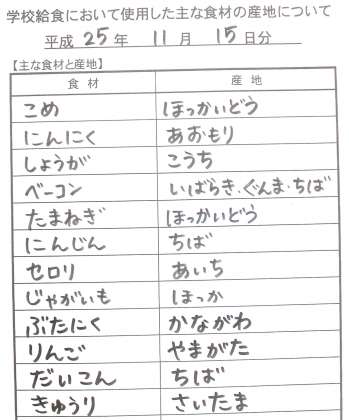 学校給食において使用した主な食材の産地について
平成 25 年 11 月 15 日分
【主な食材と産地】
食 材 産 地
こめ ほっかいどう
にんにく あおもり
しょうが こうち
ベーコン いばらき.ぐんま.ちば
たまねぎ ほっかいどう
にんじん ちば
セロリ あいち
じゃがいも ほっか
ぶたにく かながわ
りんご やまがた
だいこん ちば
きゅうり さいたま